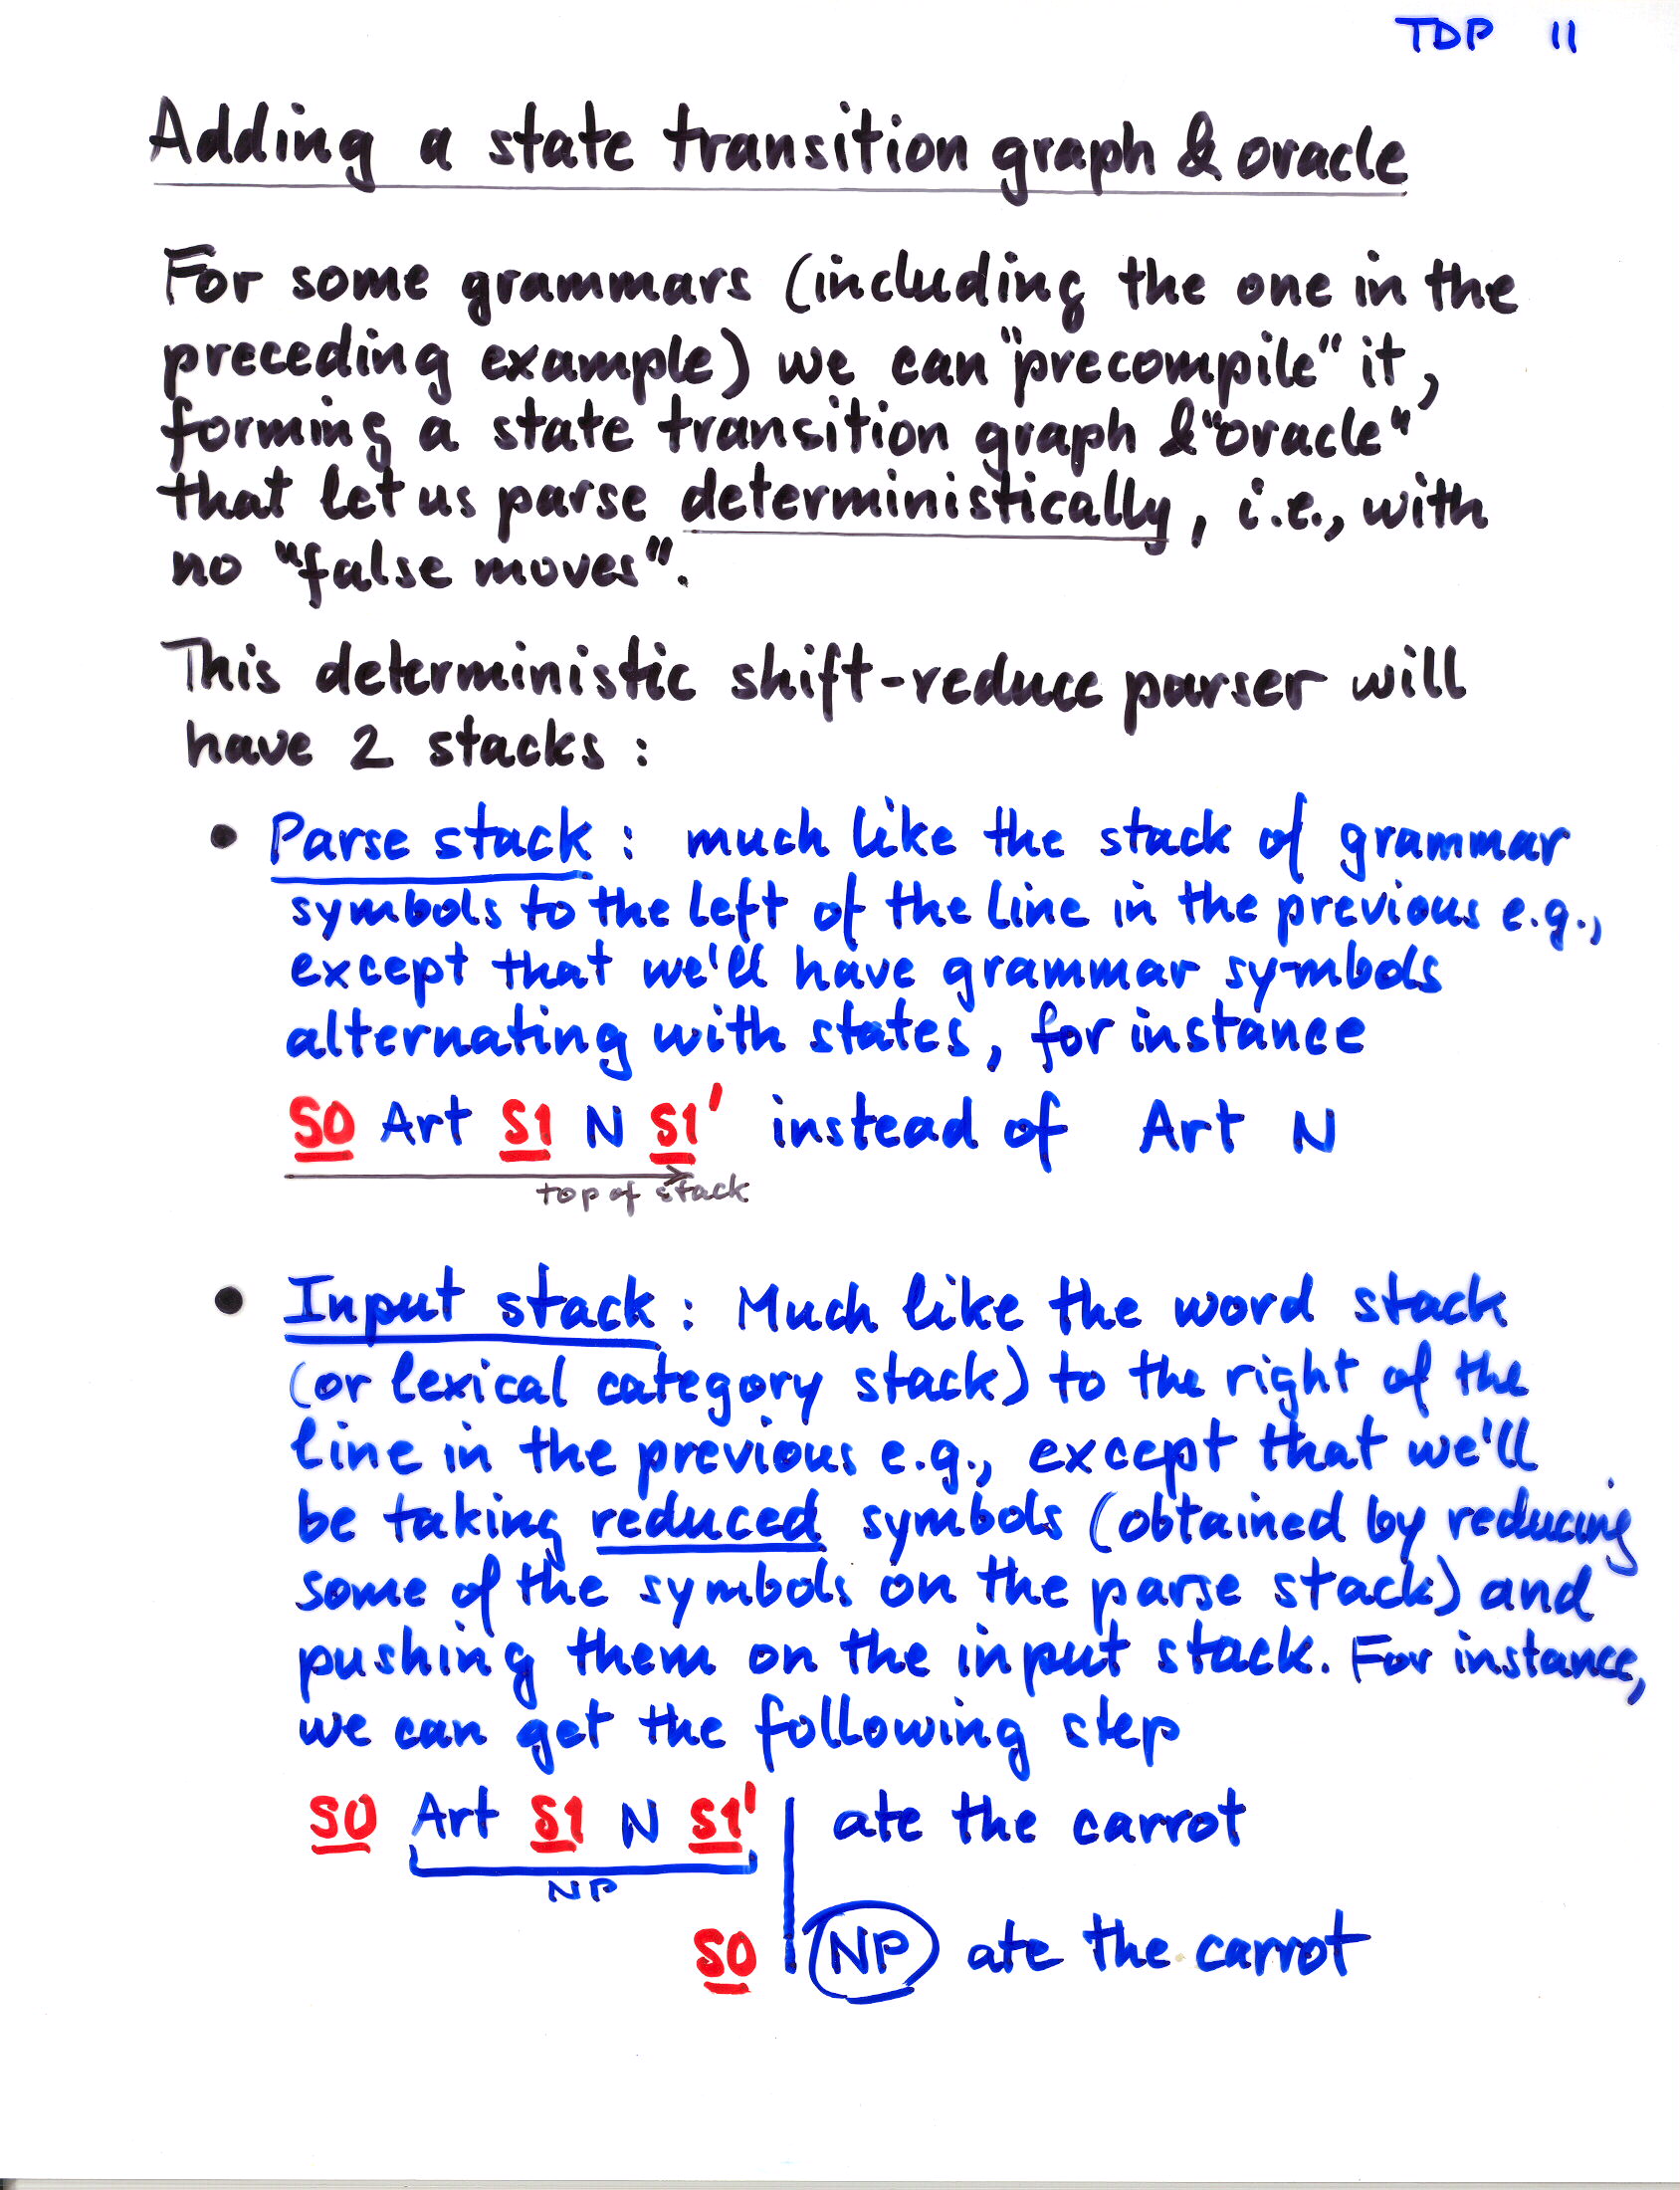 TDP 11
Adding a state transition graph & oracle
For some grammars (including the one in the
preceding example) we can "precompile" it,
forming a state transition graph & "oracle"
that let us parse deterministically, i.e., with
no "false moves".
This deterministic shift-reduce parser will
have 2 stacks :
• Parse stack : much like the stack of grammar
symbols to the left of the line in the previous e.g.,
except that we'll have grammar symbols
alternating with states, for instance
S0 Art S1 N S1' instead of Art N
top of stack
• Input stack : Much like the word stack
(or lexical category stack) to the right of the
line in the previous e.g., except that we'll
be taking reduced symbols (obtained by reducing
some of the symbols on the parse stack) and
pushing them on the input stack. For instance,
we can get the following step
S0 Art S1 N S1' | ate the carrot
NP
S0 | NP ate the carrot